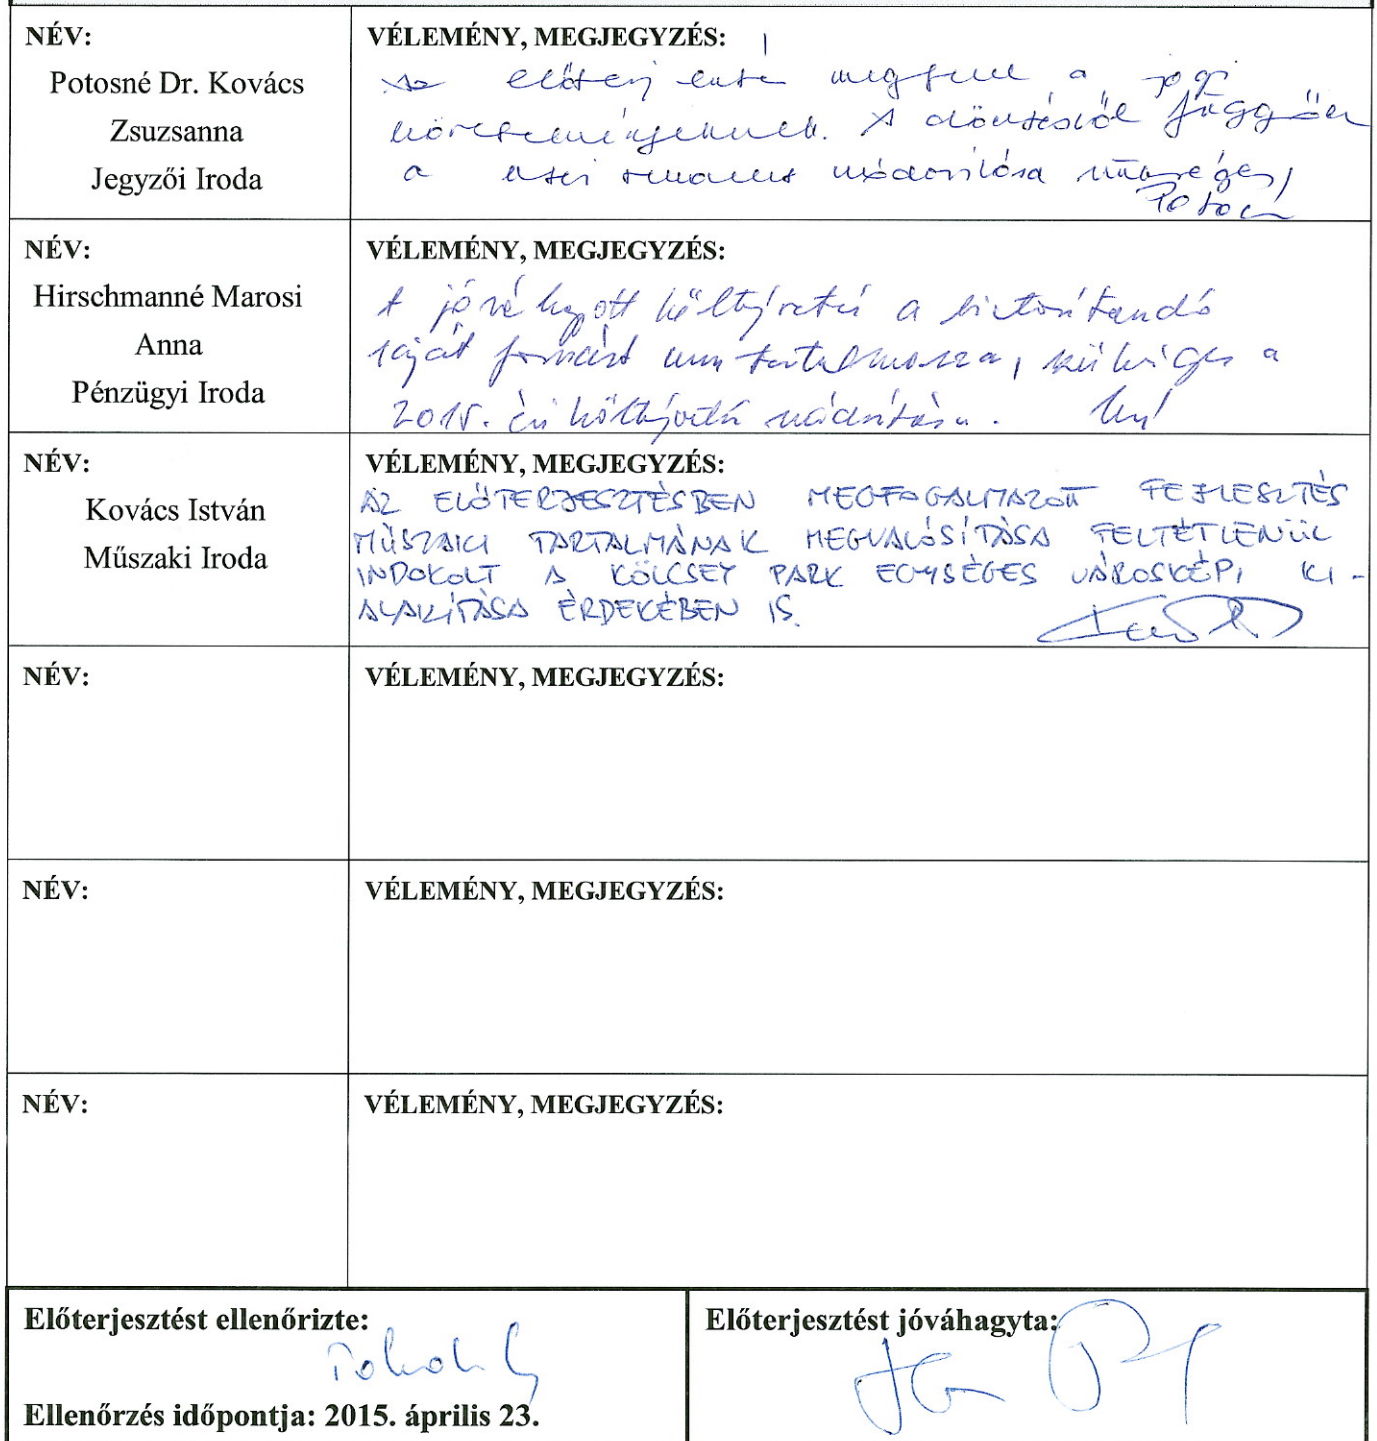 NÉV:
Potosné Dr. Kovács
Zsuzsanna
Jegyzői Iroda
VÉLEMÉNY, MEGJEGYZÉS:
Az előterjesztés megfelel a jogi
követelményeknek. A döntéstől függően
a módosítása szükséges,
NÉV:
Hirschmanné Marosi
Anna
Pénzügyi Iroda
VÉLEMÉNY, MEGJEGYZÉS:
A jóváhagyott költségvetés a biztosítandó
saját forrást nem tartalmazza, szükséges a
2015. évi költségvetés módosítása.
NÉV:
Kovács István
Műszaki Iroda
VÉLEMÉNY, MEGJEGYZÉS:
AZ ELŐTERJESZTÉSBEN MEGFOGALMAZOTT FEJLESZTÉS
MŰSZAKI TARTALMÁNAK MEGVALÓSÍTÁSA FELTÉTLENÜL
INDOKOLT A KÖLCSEY PARK EGYSÉGES VÁROSKÉPI KI-
ALAKÍTÁSA ÉRDEKÉBEN IS.
NÉV:
VÉLEMÉNY, MEGJEGYZÉS:
NÉV:
VÉLEMÉNY, MEGJEGYZÉS:
NÉV:
VÉLEMÉNY, MEGJEGYZÉS:
Előterjesztést ellenőrizte:
Ellenőrzés időpontja: 2015. április 23.
Előterjesztést jóváhagyta: